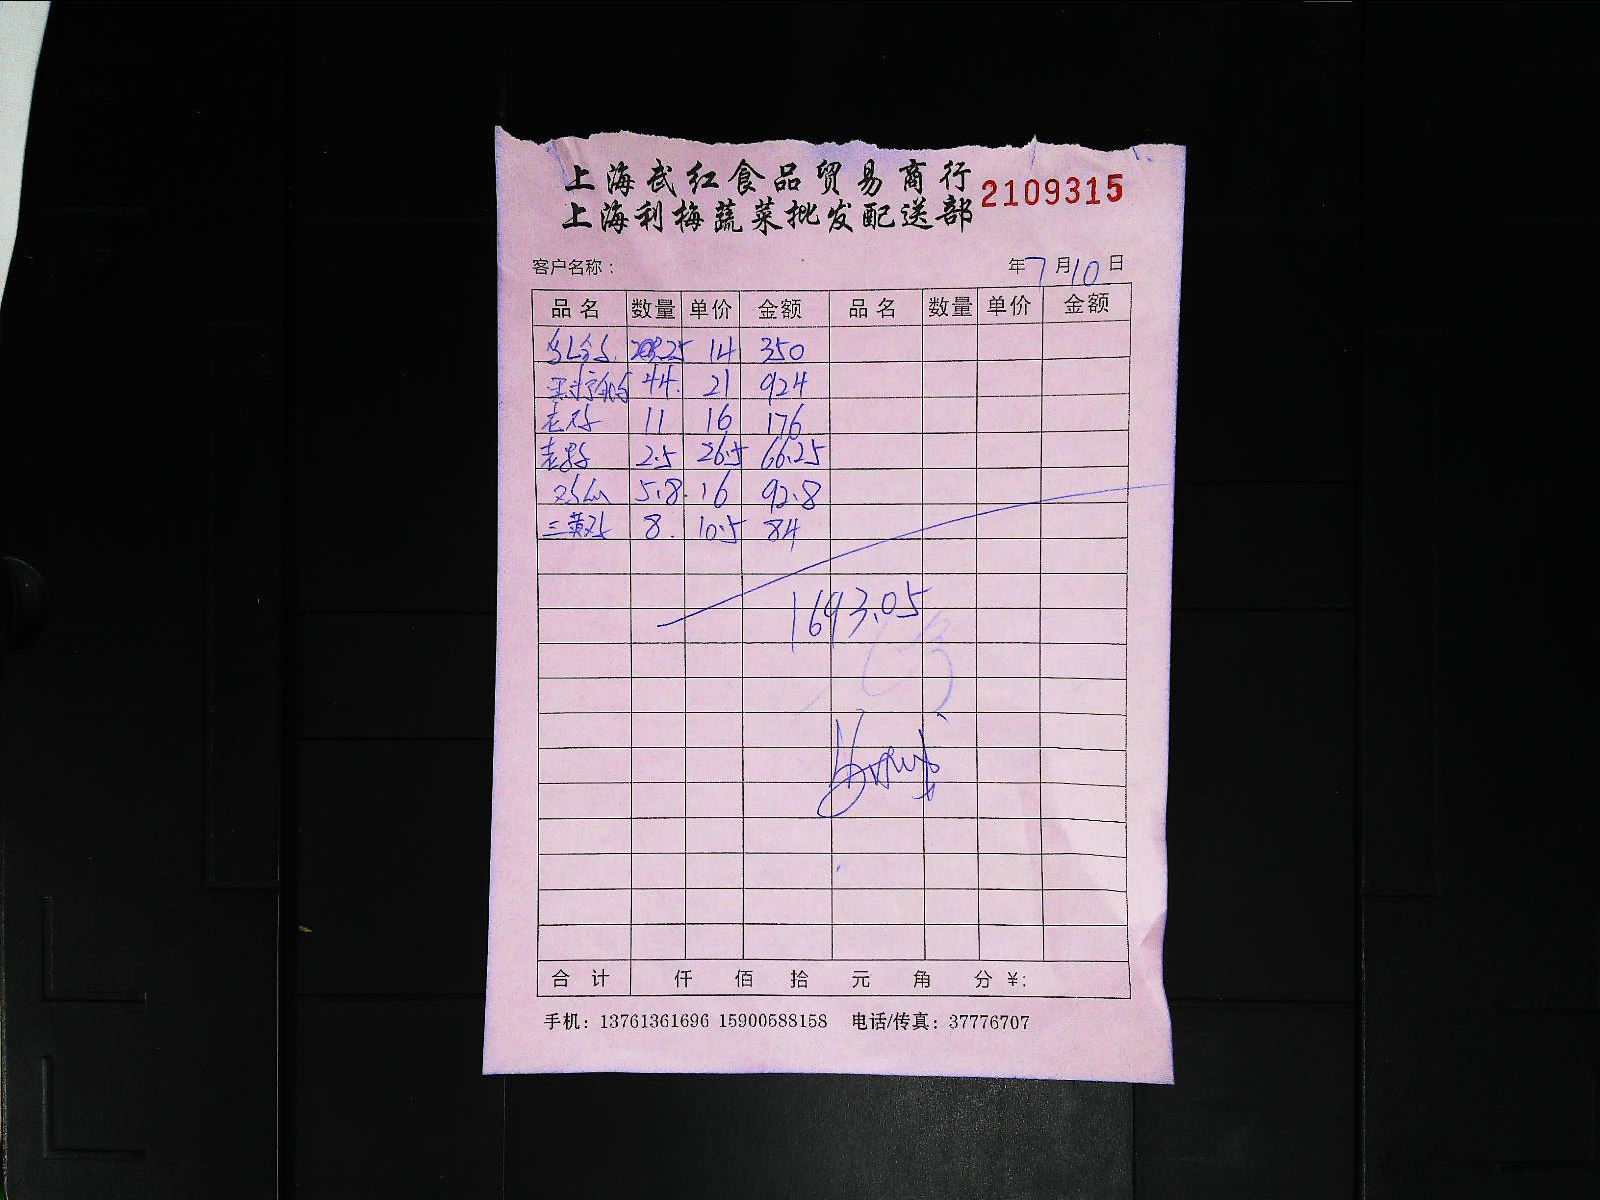 上海武红食品贸易商行
上海利梅蔬菜批发配送部 2109315
客户名称： 年7月10日
品名 数量 单价 金额 品名 数量 单价 金额
25 14 350
44. 21 924
老 11 16 176
老 2.5 26.5 66.25
5.8. 16 92.8
三黄鸡 8. 10.5 84
1693.05
合计 仟 佰 拾 元 角 分 ¥:
手机：13761361696 15900588158 电话/传真：37776707